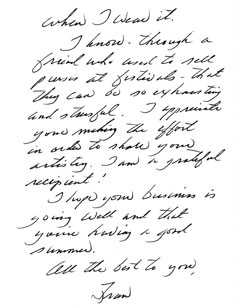 when I wear it.
I know - through a
friend who used to sell
purses at festivals - that
they can be so exhausting
and stressful. I appreciate
your making the effort
in order to share your
artistry. I am a grateful
recipient!
I hope your business is
going well and that
you're having a good
summer.
All the best to you,
Fran